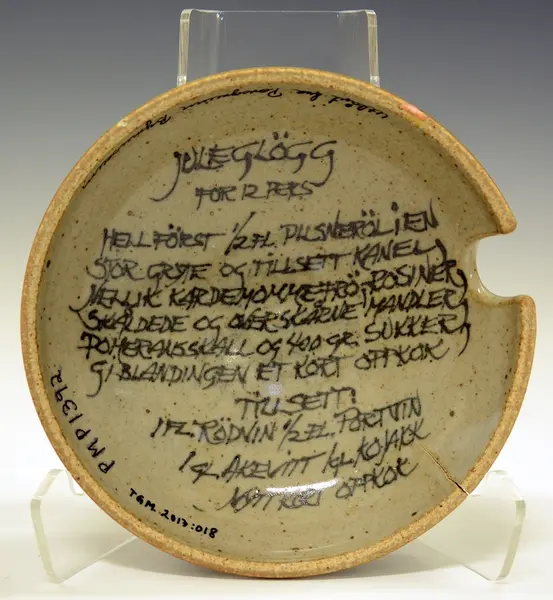 JULEGLÖGG
FÖR 12 PERS
HELL FÖRST 1/2 FL. PILSNERÖL I EN
STOR GRYTE OG TILLSETT KANEL,
NELLIK KARDEMOMMEFRÖ, ROSINER,
SKÅLDEDE OG OVERSKÅRNE MANDLER,
POMERANSSKALL OG 400 GR. SUKKER,
GI BLANDINGEN ET KORT OPPKOK
TILLSETT:
1 FL. RÖDVIN 1/2 FL. PORTVIN
1 GL. AKEVITT 1 GL. KOJAKK
NYTT KORT OPPKOK
PMP1392
TGM. 2013:018